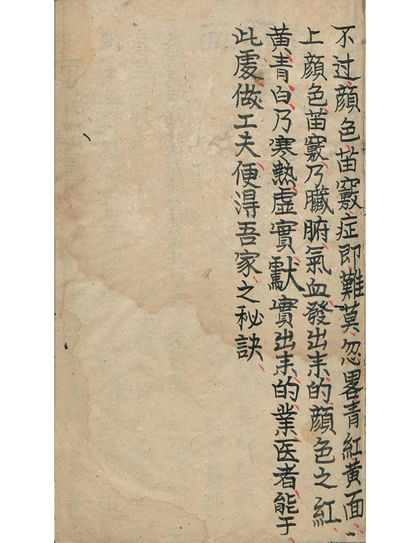 不过顔色苗竅症即難莫忽畧青紅黃面
上顔色苗竅乃臟腑氣血發出来的顔色之紅
黃青白乃寒熱虛實獻實出来的業医者能于
此處做工夫便得吾家之秘訣